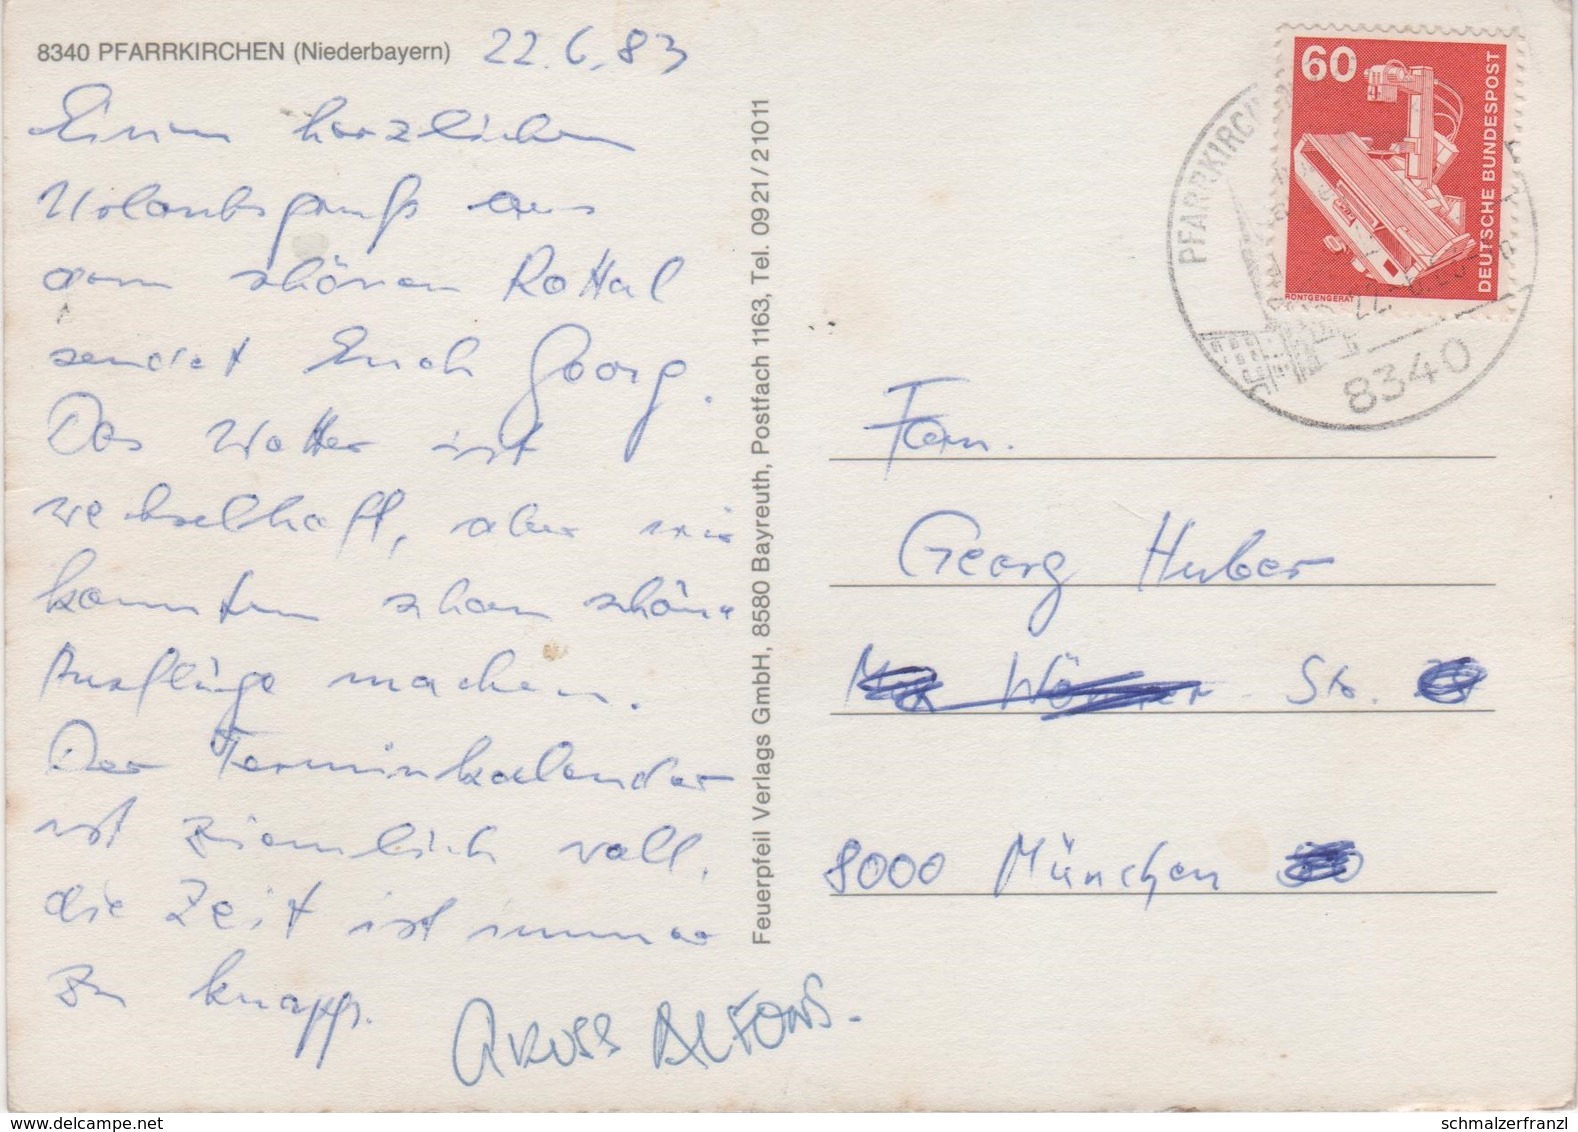 8340 PFARRKIRCHEN (Niederbayern) 22.6.83
Einen herzlichen
Urlaubsgruß aus
dem schönen Rottal
sendet Euch Georg.
Das Wetter ist
wechselhaft, aber wir
konnten schon schöne
Ausflüge machen.
Der Terminkalender
ist ziemlich voll,
die Zeit ist immer
zu knapp.
GRUSS ALFONS.
Feuerpfeil Verlags GmbH, 8580 Bayreuth, Postfach 1163, Tel. 09 21 / 2 10 11
60
DEUTSCHE BUNDESPOST
RÖNTGENGERÄT
PFARRKIRCH
22.-6.
8340
Fam.
Georg Huber
Str.
8000 München
www.delcampe.net
schmalzerfranzl